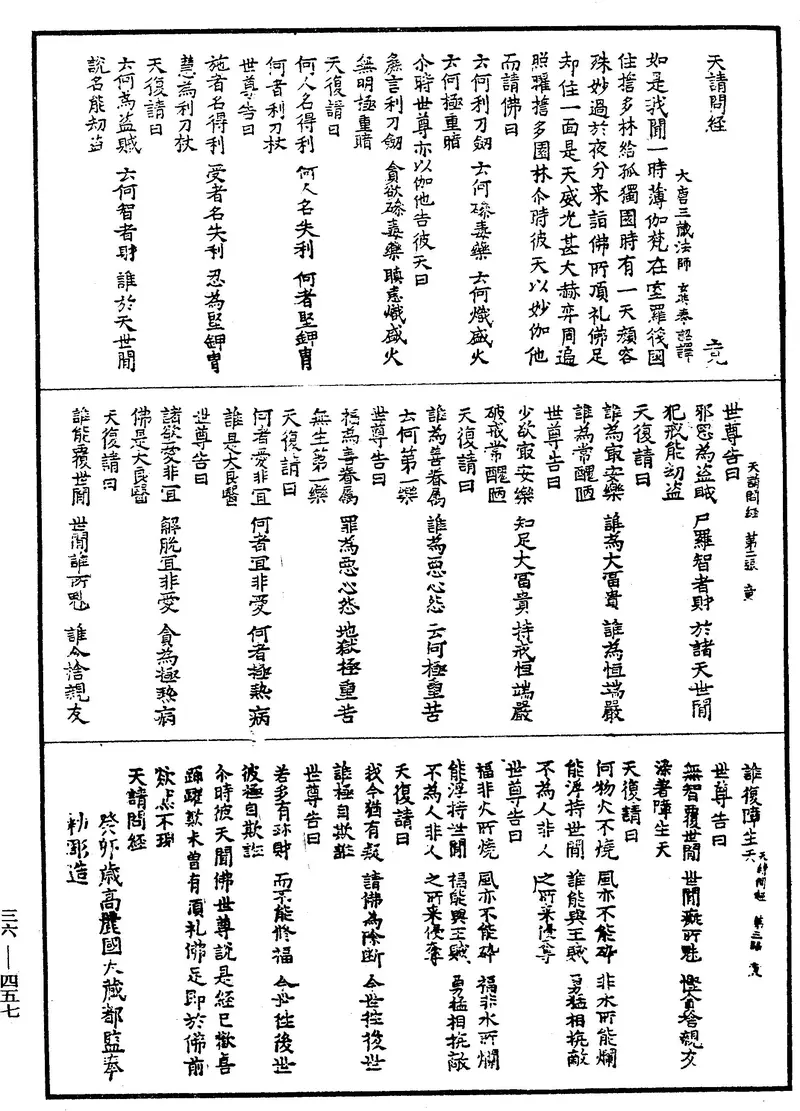 天請問経　竟
大唐三蔵法師玄奘奉詔譯
如是我聞一時薄伽梵在室羅筏國
住擔多林給孤獨園時有一天顏容
殊妙過於夜分来詣佛所頂礼佛足
却住一面是天威光甚大赫弈周遍
照曜擔多園林尒時彼天以妙伽他
而請佛曰
云何利刀劔　云何磣毒藥　云何熾盛火
云何極重暗
尒時世尊亦以伽他告彼天曰
麁言利刀劔　貪欲磣毒藥　瞋恚熾盛火
無明極重暗
天復請曰
何人名得利　何人名失利　何者堅鉀冑
何者利刀杖
世尊告曰
施者名得利　受者名失利　忍為堅鉀冑
慧為利刀杖
天復請曰
云何為盜賊　云何智者財　誰於天世閒
說名能劫盜
天請問経　第二張　竟
世尊告曰
邪思為盜賊　尸羅智者財　於諸天世閒
犯戒能劫盜
天復請曰
誰為最安樂　誰為大冨貴　誰為恒端嚴
誰為常醜陋
世尊告曰
少欲最安樂　知足大冨貴　持戒恒端嚴
破戒常醜陋
天復請曰
誰為善眷属　誰為惡心怨　云何極重苦
云何第一樂
世尊告曰
福為善眷属　罪為惡心怨　地獄極重苦
無生第一樂
天復請曰
何者愛非宜　何者宜非愛　何者極熱病
誰是大良醫
世尊告曰
諸欲愛非宜　解脫宜非愛　貪為極熱病
佛是大良醫
天復請曰
誰能覆世閒　世閒誰所魅　誰令捨親友
誰復障生天
天請問経　第三張　竟
世尊告曰
無智覆世閒　世閒癡所魅　慳貪捨親友
染著障生天
天復請曰
何物火不燒　風亦不能碎　非水所能爛
能浮持世閒　誰能與王賊　勇猛相抗敵
不為人非人　之所来侵奪
世尊告曰
福非火所燒　風亦不能碎　福非水所爛
能浮持世閒　福能與王賊　勇猛相抗敵
不為人非人　之所来侵奪
天復請曰
我今猶有疑　請佛為除斷　今世往後世
誰極自欺誑
世尊告曰
若多有珎財　而不能修福　今世往後世
彼極自欺誑
尒時彼天聞佛世尊說是經已歡喜
踊躍歎未曾有頂礼佛足即於佛前
欻然不現
天請問経
癸卯歳高麗國大蔵都監奉
勑彫造
三六—四五七